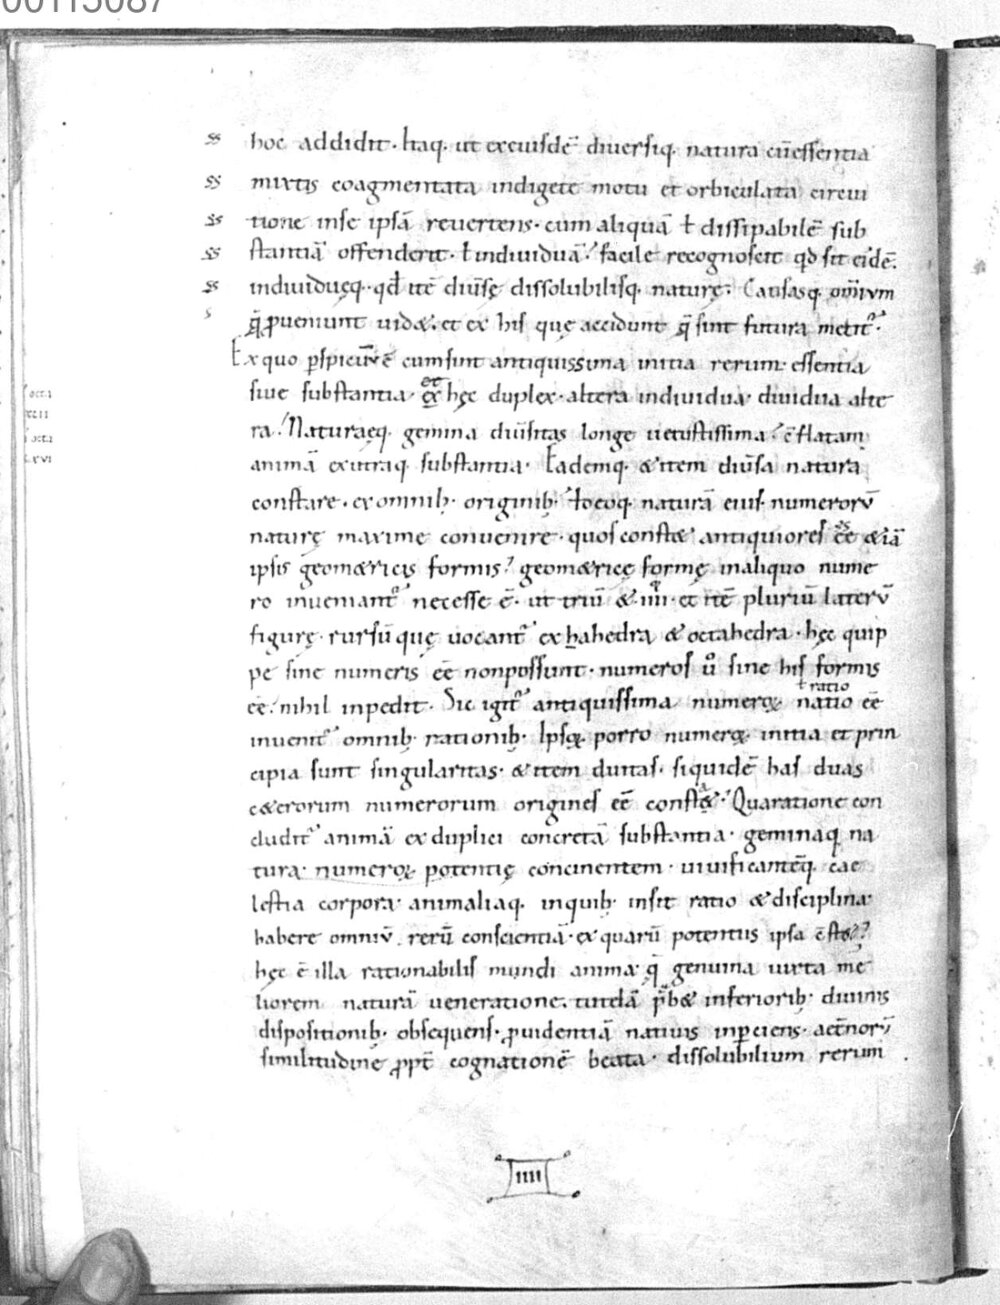 00115087
ss hoc addidit. Itaq. ut ex eiusdē diversiq. natura cū essentia
ss mixtis coagmentata indigete motu et orbiculata circui
ss tione inse ipsā revertens. cum aliquā ł dissipabilē sub
ss stantiā offenderit. ł individuā. facile recognoscit qđ sit eidē.
ss individuęq. qđ itē divīsę dissolubilisq. naturę. Causasq. omīum
s q̄ proveniunt videt. et ex his quę accidunt q̄ sint futura metit᷑.
Ex quo pspicuū ē cum sint antiquissima initia rerum. essentia
et
sive substantia. ex hęc duplex. altera individua dividua alte
ra. Naturaeq. gemina diūsitas longe vetustissima. ē
animā ex utraq. substantia. Eademq. & item diūsa natura
constare. ex omnib. originib. naturā eius numerorū
naturę maxime convenire. quos constat antiquiores ēē & iā
ipsis geom&ricis formis. geom&ricę formę in aliquo nume
ro inveniant᷑ necesse ē. ut triū & IIII. et itē pluriū laterū
figurę. rursū quę vocant᷑ exhahedra & octahedra. hęc quip
pe sine numeris ēē non possunt. numeros ů sine his formis
ł ratio
ēē. nihil inpedit. Sic igit᷑ antiquissima numeroꝝ natio ēē
invenit᷑ omnib. rationib. Ipsoꝝ porro numeroꝝ initia et prin
cipia sunt singularitas. & item duitas. siquidē has duas
c&erorum numerorum origines ēē const&. Qua ratione con
cludit᷑ animā ex duplici concretā substantia. geminaq. na
tura. numeroꝝ potentię concinentem. vivificantēq. cae
lestia corpora. animaliaq. in quib. insit ratio & disciplina.
habere omniū rerū conscientiā. ex quarū potentiis ipsa ē
hęc ē illa rationabilis mundi anima q̄ gemina iuxta me
liorem naturā veneratione. tutelā p̄b& inferiorib. divinis
dispositionib. obsequens. providentiā nativis inpciens. aet̄norū
similitudinē propt̄ cognationē beata. dissolubilium rerum
IIII